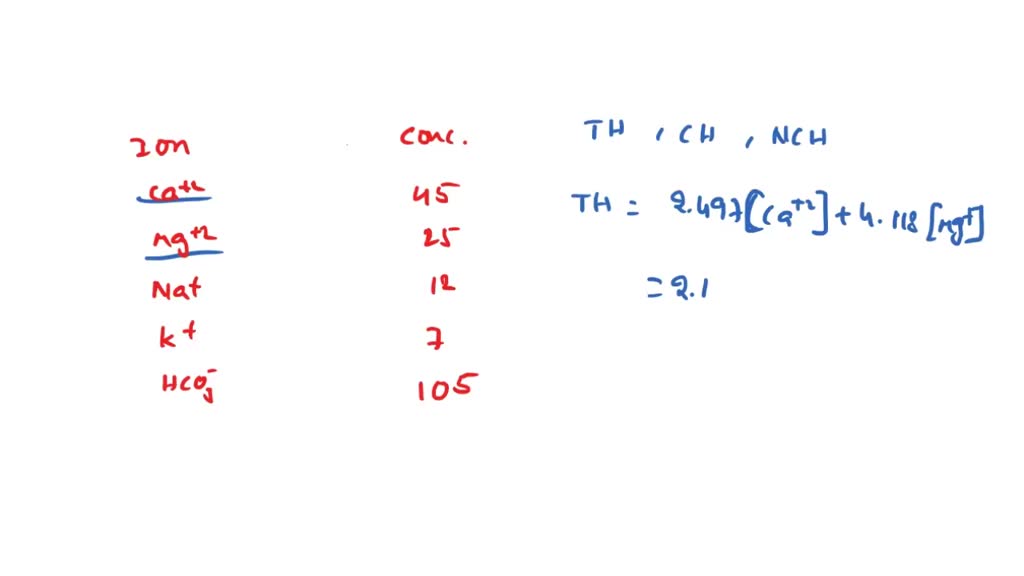 Ion Conc.
Ca+2 45
Mg+2 25
Na+ 12
K+ 7
HCO3- 105
TH , CH , NCH
TH = 2.497[Ca+2] + 4.118[Mg+]
= 2.1